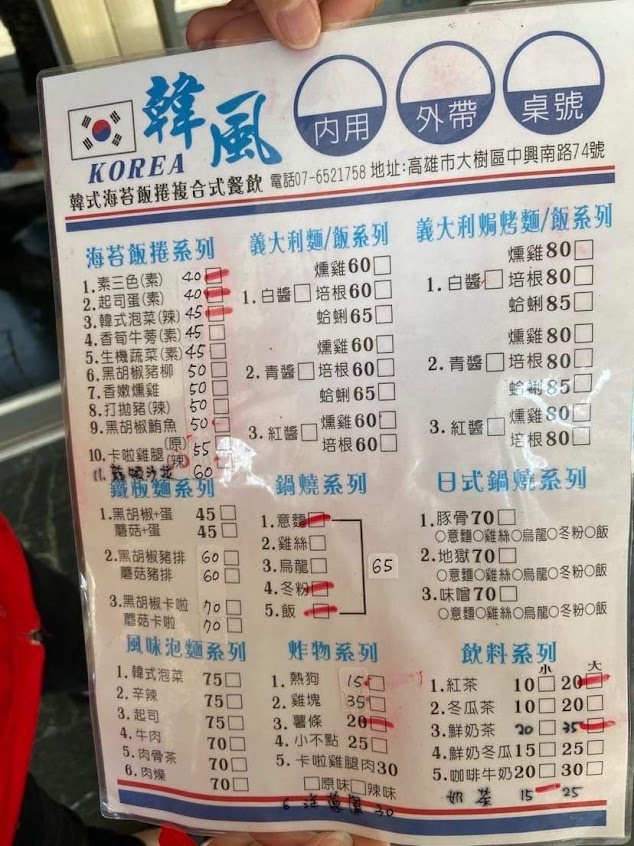 韓風
KOREA
內用
外帶
桌號
韓式海苔飯捲複合式餐飲 電話07-6521758 地址:高雄市大樹區中興南路74號
海苔飯捲系列
1.素三色(素) 40
2.起司蛋(素) 40
3.韓式泡菜(辣) 45
4.香筍牛蒡(素) 45
5.生機蔬菜(素) 45
6.黑胡椒豬柳 50
7.香嫩燻雞 50
8.打拋豬(辣) 50
9.黑胡椒鮪魚 50
10.卡啦雞腿(原)(辣) 55
11. 60
義大利麵/飯系列
1.白醬 燻雞60
培根60
蛤蜊65
2.青醬 燻雞60
培根60
蛤蜊65
3.紅醬 燻雞60
培根60
義大利焗烤麵/飯系列
1.白醬 燻雞80
培根80
蛤蜊85
2.青醬 燻雞80
培根80
蛤蜊85
3.紅醬 燻雞80
培根80
鐵板麵系列
1.黑胡椒+蛋 45
蘑菇+蛋 45
2.黑胡椒豬排 60
蘑菇豬排 60
3.黑胡椒卡啦 70
蘑菇卡啦 70
鍋燒系列
1.意麵
2.雞絲
3.烏龍
4.冬粉
5.飯
65
日式鍋燒系列
1.豚骨70
○意麵○雞絲○烏龍○冬粉○飯
2.地獄70
○意麵○雞絲○烏龍○冬粉○飯
3.味噌70
○意麵○雞絲○烏龍○冬粉○飯
風味泡麵系列
1.韓式泡菜 75
2.辛辣 75
3.起司 75
4.牛肉 70
5.肉骨茶 70
6.肉燥 70
炸物系列
1.熱狗 15
2.雞塊 35
3.薯條 20
4.小不點 25
5.卡啦雞腿肉30
原味 辣味
6 洋蔥圈 30
飲料系列
小 大
1.紅茶 10 20
2.冬瓜茶 10 20
3.鮮奶茶 20 35
4.鮮奶冬瓜15 25
5.咖啡牛奶20 30
奶茶 15 25